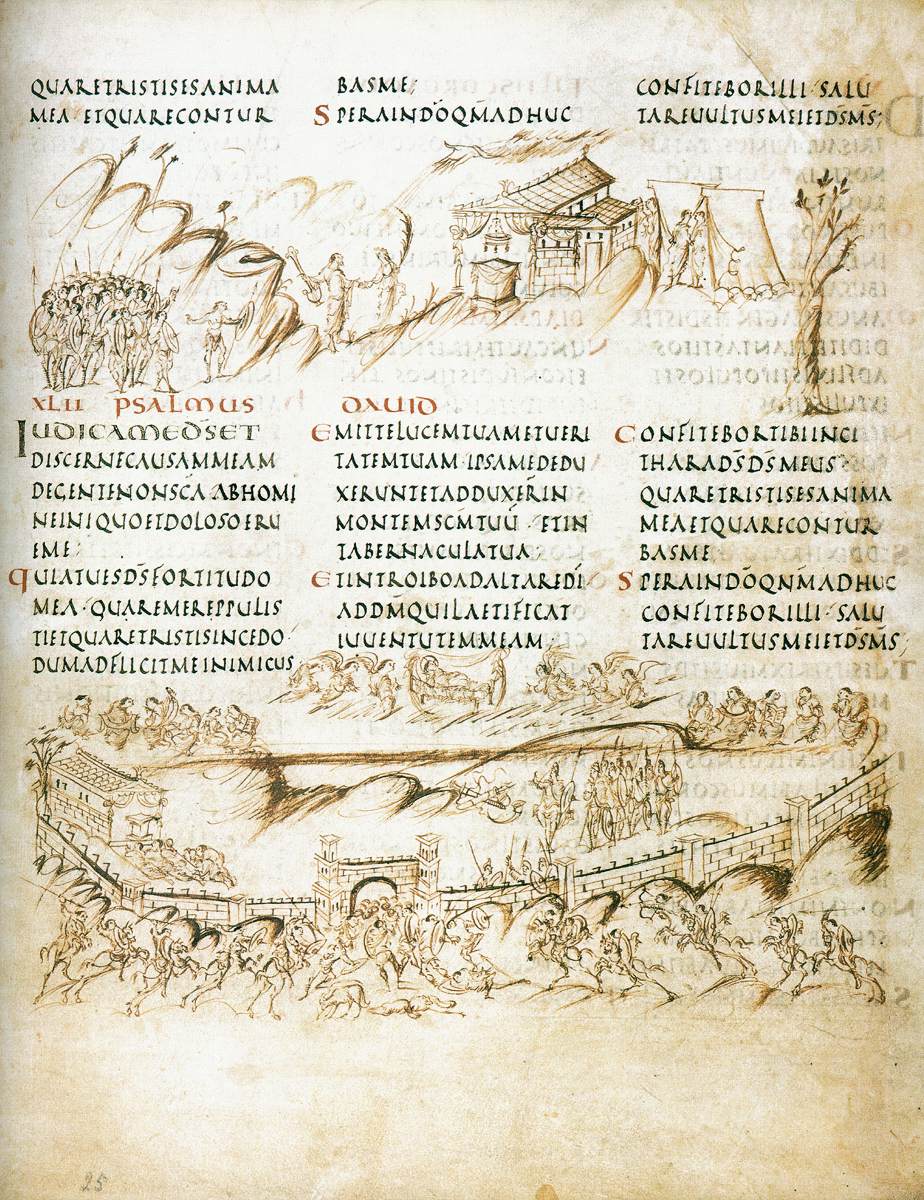 QUARETRISTISESANIMA
MEA ETQUARECONTUR
BASME;
SPERAINDŌQM̄ADHUC
CONFITEBORILLI·SALU
TAREUULTUSMEIETD̄SM̄S;
XLII PSALMUS DAUID
IUDICAMED̄SET
DISCERNECAUSAMMEAM
DEGENTENONSC̄A·ABHOMI
NEINIQUOETDOLOSOERU
EME;
QUIATUESD̄SFORTITUDO
MEA·QUAREMEREPPULIS
TIETQUARETRISTISINCEDO·
DUMADFLICITMEINIMICUS;
EMITTELUCEMTUAMETUERI
TATEMTUAM·IPSAMEDEDU
XERUNTETADDUXER̄IN
MONTEMSC̄MTUŪ·ETIN
TABERNACULATUA·
ETINTROIBOADALTAREDĪ
ADDM̄QUILAETIFICAT
IUUENTUTEMMEAM;
CONFITEBORTIBIINCI
THARAD̄SD̄SMEUS
QUARETRISTISESANIMA
MEAETQUARECONTUR
BASME
SPERAINDŌQNM̄ADHUC
CONFITEBORILLI·SALU
TAREUULTUSMEIETD̄SM̄S;
25